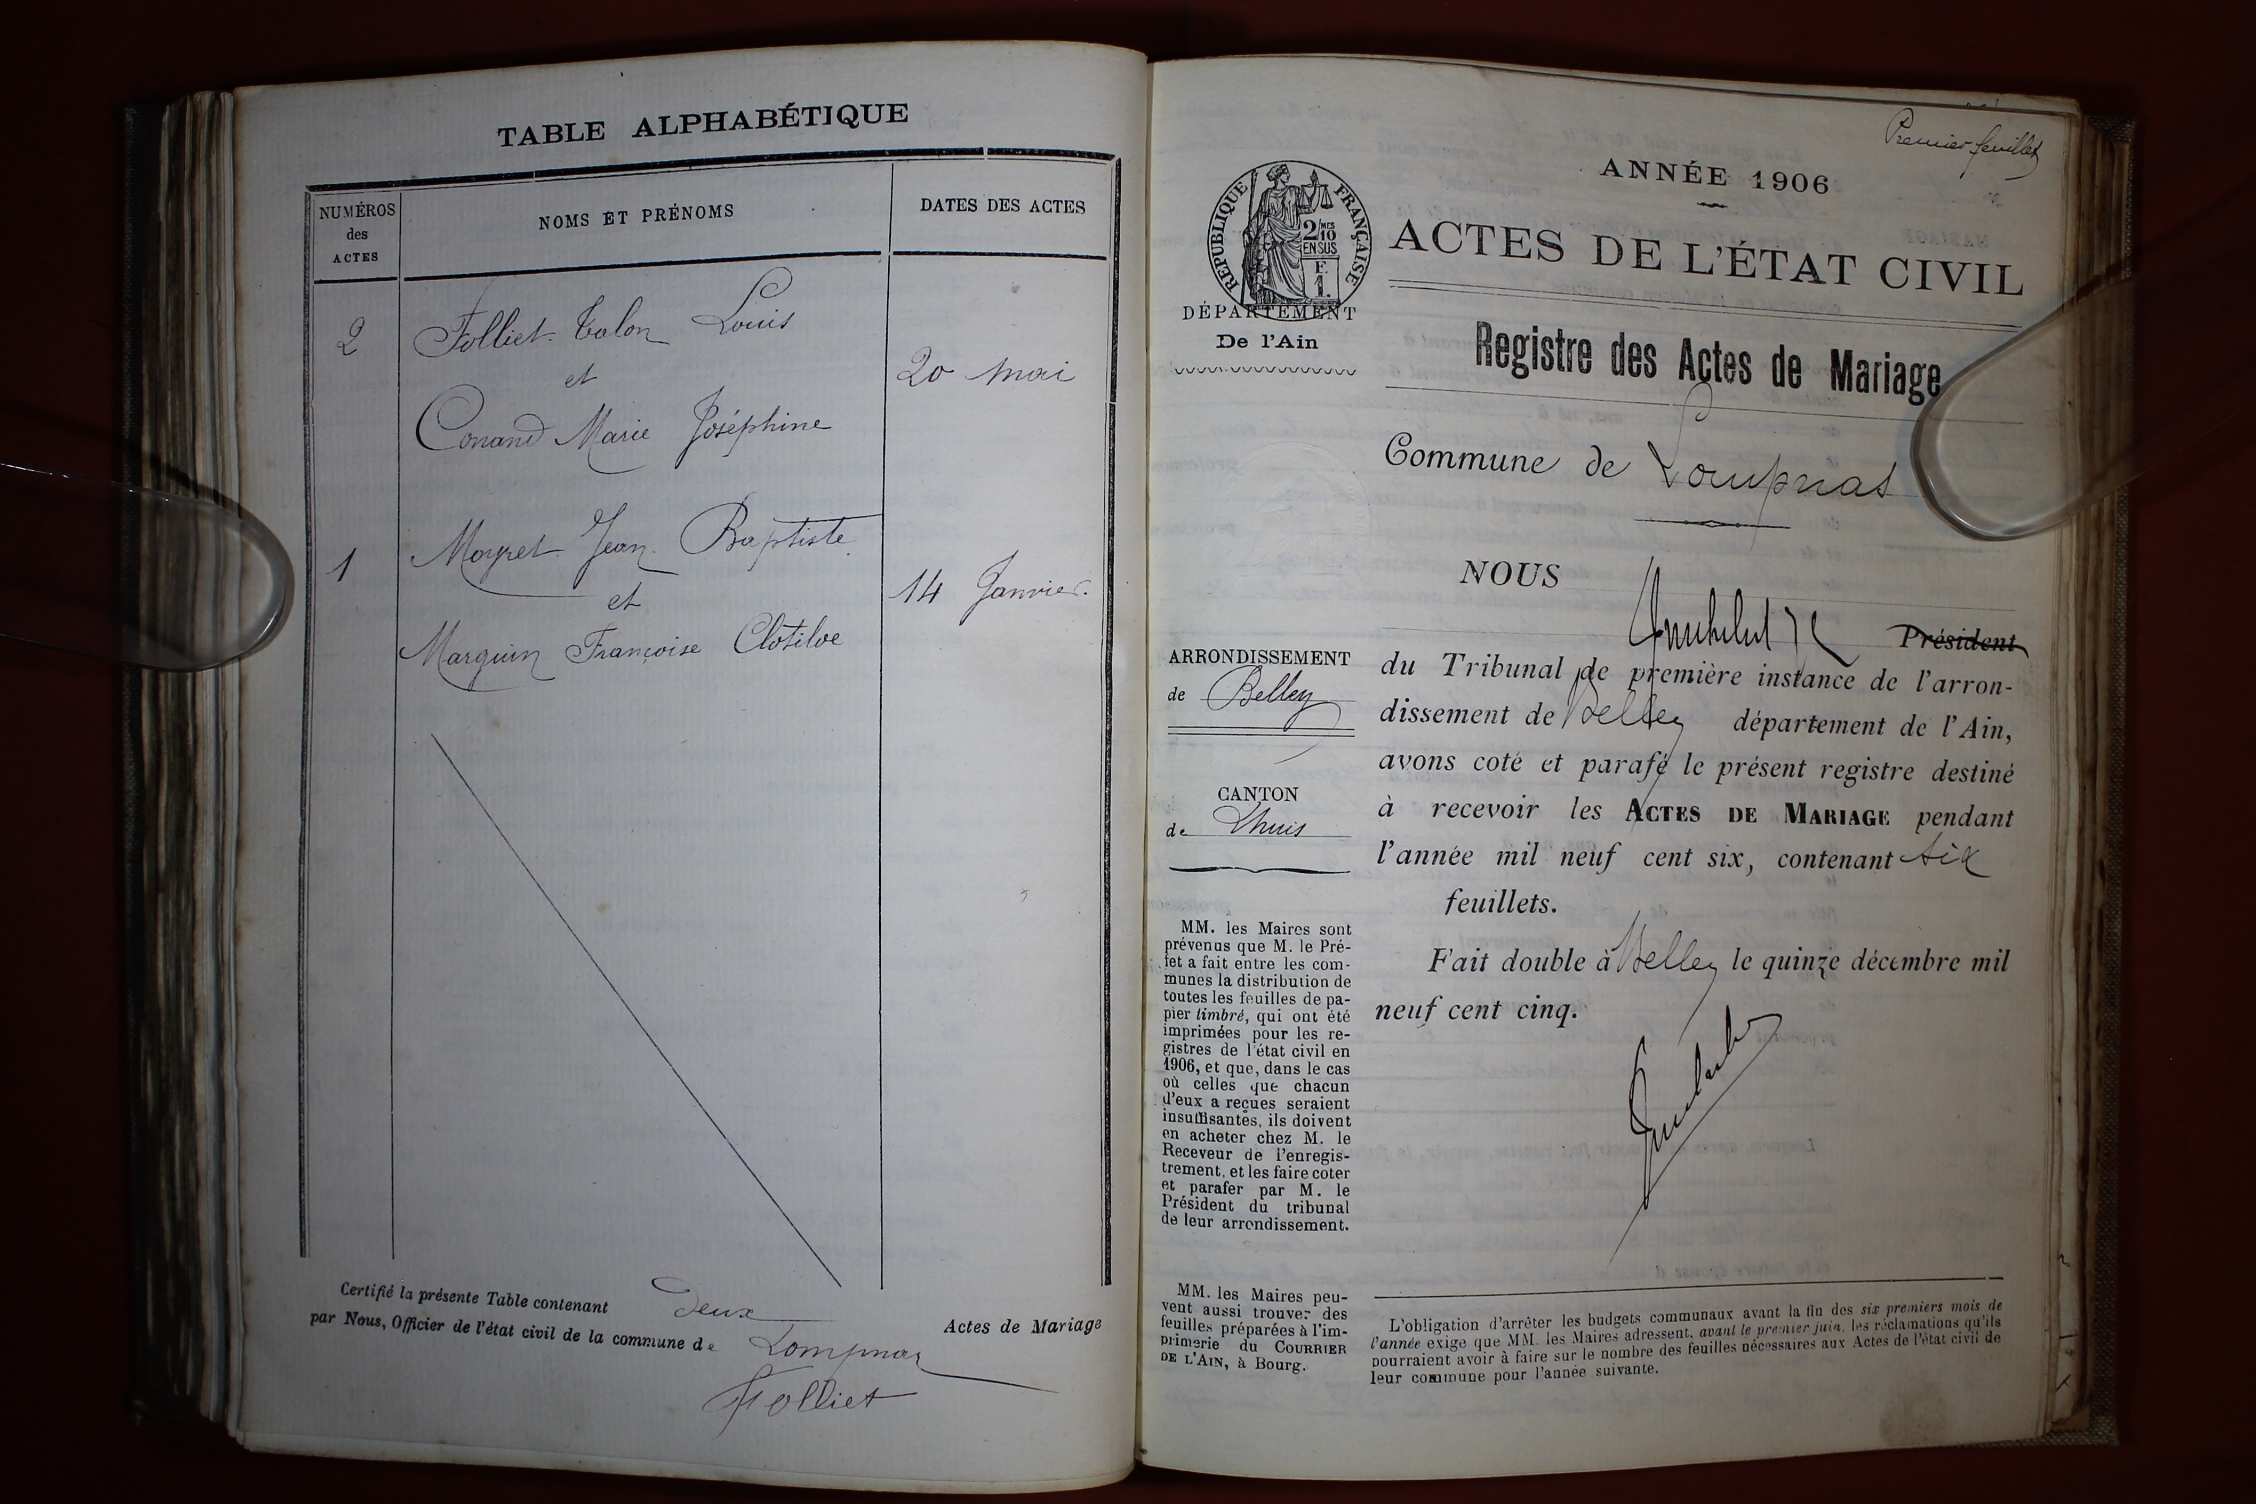 TABLE ALPHABÉTIQUE
NUMÉROS
des
ACTES
NOMS ET PRÉNOMS
DATES DES ACTES
2
Folliet-Talon Louis
et
20 mai
Conand Marie Joséphine
Mogret Jean Baptiste
1
et
14 Janvier.
Marquin Françoise Clotilde
Certifié la présente Table contenant deux Actes de Mariage
par Nous, Officier de l'état civil de la commune de Lompnas
Folliet
Premier feuillet
ANNÉE 1906
ACTES DE L'ÉTAT CIVIL
RÉPUBLIQUE FRANÇAISE
2/MES
10
EN SUS
F.
1.
DÉPARTEMENT
De l'Ain
Registre des Actes de Mariage
Commune de Lompnas
NOUS
Président
ARRONDISSEMENT
de Belley
CANTON
de Lhuis
du Tribunal de première instance de l'arron-
dissement de Belley département de l'Ain,
avons coté et parafé le présent registre destiné
à recevoir les ACTES DE MARIAGE pendant
l'année mil neuf cent six, contenant six
feuillets.
Fait double à Belley le quinze décembre mil
neuf cent cinq.
MM. les Maires sont
prévenus que M. le Pré-
fet a fait entre les com-
munes la distribution de
toutes les feuilles de pa-
pier timbré, qui ont été
imprimées pour les re-
gistres de l'état civil en
1906, et que, dans le cas
où celles que chacun
d'eux a reçues seraient
insuffisantes, ils doivent
en acheter chez M. le
Receveur de l'enregis-
trement, et les faire coter
et parafer par M. le
Président du tribunal
de leur arrondissement.
MM. les Maires peu-
vent aussi trouver des
feuilles préparées à l'im-
primerie du COURRIER
DE L'AIN, à Bourg.
L'obligation d'arrêter les budgets communaux avant la fin des six premiers mois de
l'année exige que MM. les Maires adressent, avant le premier juin, les réclamations qu'ils
pourraient avoir à faire sur le nombre des feuilles nécessaires aux Actes de l'état civil de
leur commune pour l'année suivante.